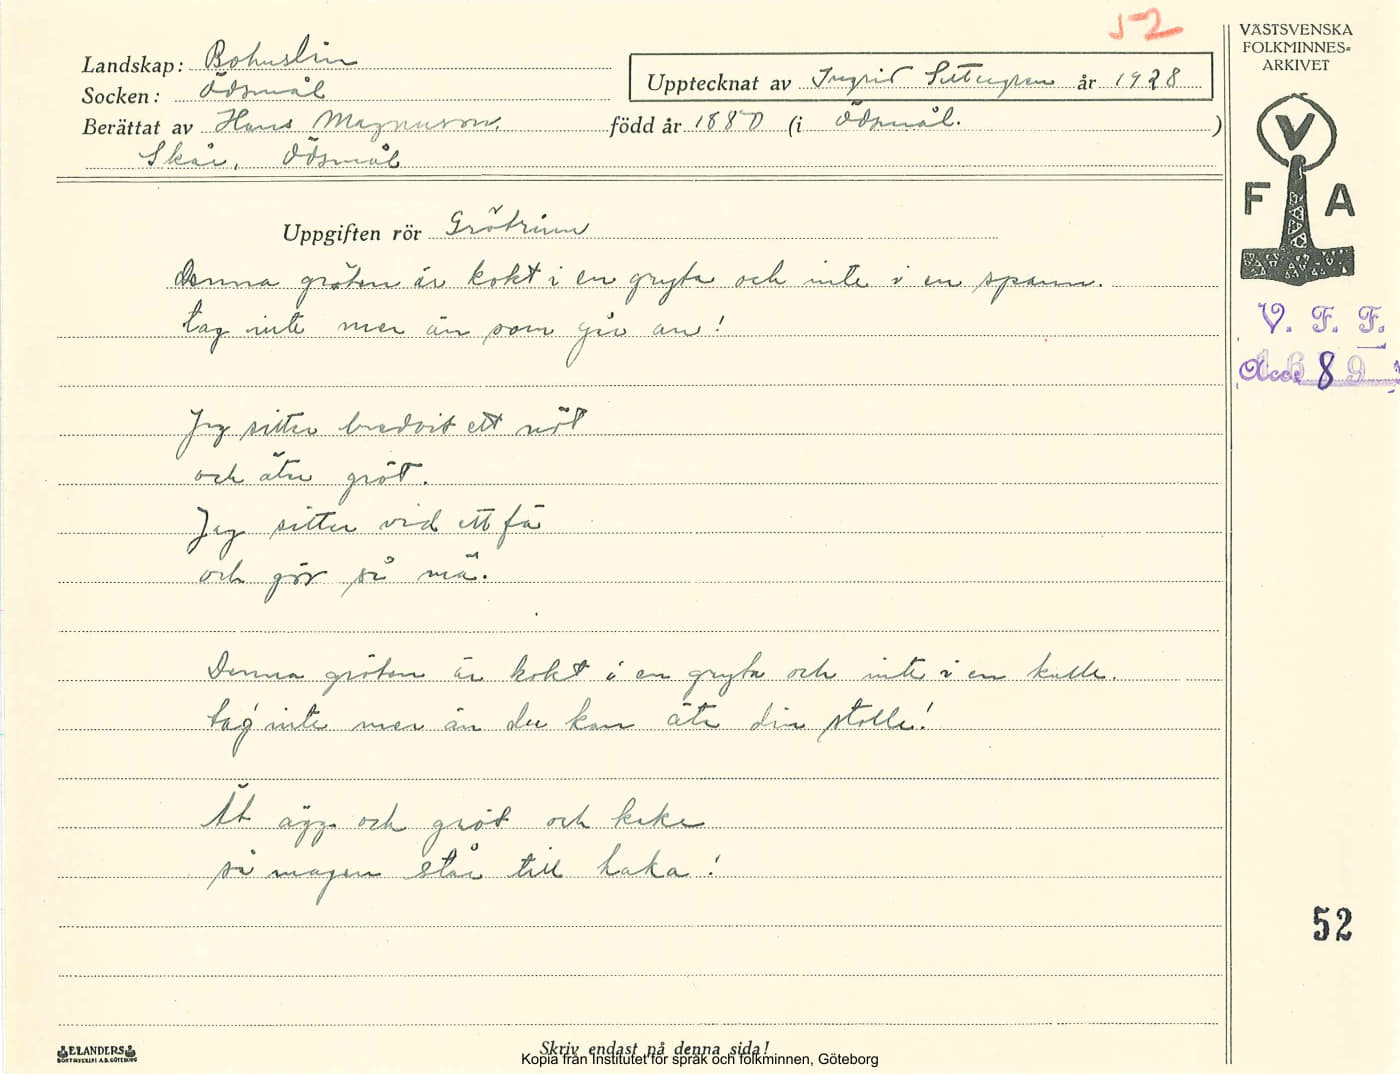 52
Landskap: Bohuslän
Socken: Ödsmål
Upptecknat av Ingrid år 1928
Berättat av Hans Magnuson. född år 1880 (i Ödsmål.)
Skår, Ödsmål
VÄSTSVENSKA
FOLKMINNES-
ARKIVET
V
F A
V. F. F.
Acc. 89
Uppgiften rör Grötrim
Denna gröten är kokt i en gryta och inte i en spann.
tag inte mer än som går an!
Jag sitter bredvid ett nöt
och äter gröt.
Jag sitter vid ett fä
och gör så mä.
Denna gröten är kokt i en gryta och inte i en kulle.
tag inte mer än du kan äta din stolle!
Ät ägg och gröt och kaka
så magen står till haka!
52
ELANDERS
BOKTRYCKERI A.B. GÖTEBORG
Skriv endast på denna sida!
Kopia från Institutet för språk och folkminnen, Göteborg